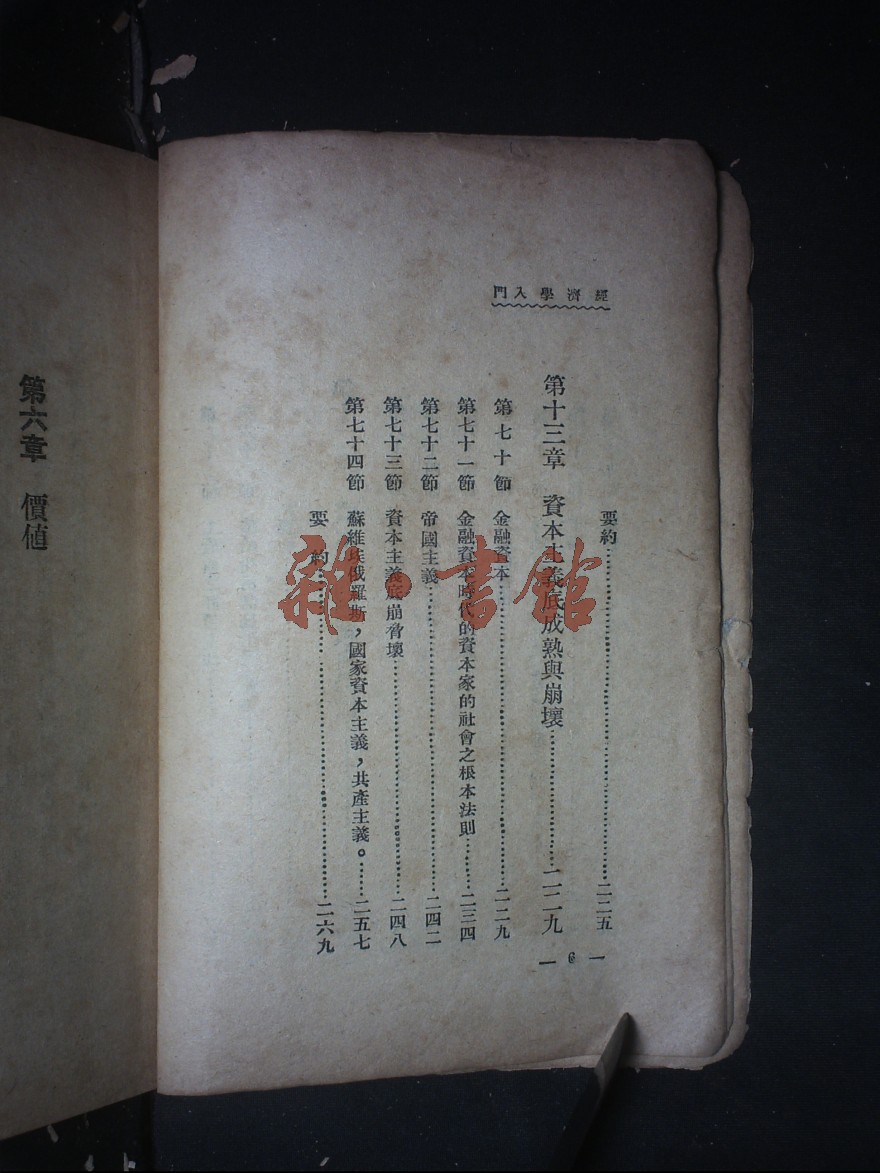 經濟學入門
要約……………………二二五
第十三章 資本主義底成熟與崩壞……………………二二九
第七十節 金融資本……………………二二九
第七十一節 金融資本時代的資本家的社會之根本法則………二三四
第七十二節 帝國主義……………………二四二
第七十三節 資本主義底崩脅壞……………………二四八
第七十四節 蘇維埃俄羅斯,國家資本主義,共產主義。……二五七
要約……………………二六九
— 6 —
第六章 價值
雜·書館